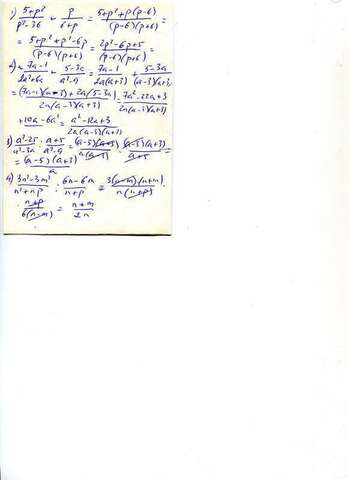 1) (5+p²)/(p²-36) + p/(6+p) = (5+p²+p(p-6))/((p-6)(p+6)) =
= (5+p²+p²-6p)/((p-6)(p+6)) = (2p²-6p+5)/((p-6)(p+6)) =
(7a-1)/(2a²+6a) + (5-3a)/(a²-9) = (7a-1)/(2a(a+3)) + (5-3a)/((a-3)(a+3)) =
= ((7a-1)(a-3)+2a(5-3a))/(2a(a-3)(a+3)) = (7a²-22a+3)/(2a(a-3)(a+3))
+10a-6a² = (a²-12a+3)/(2a(a-3)(a+3))
3) (a²-25)/(a²-3a) : (a+5)/(a²-9) = (a-5)(a+5)/(a(a-3)) · (a-3)(a+3)/(a+5) =
= (a-5)(a+3)/a
4) (3n²-3m²)/(n²+np) : (6n-6m)/(n+p) = 3(n-m)(n+m)/(n(n+p)) ·
· (n+p)/(6(n-m)) = (n+m)/(2n)